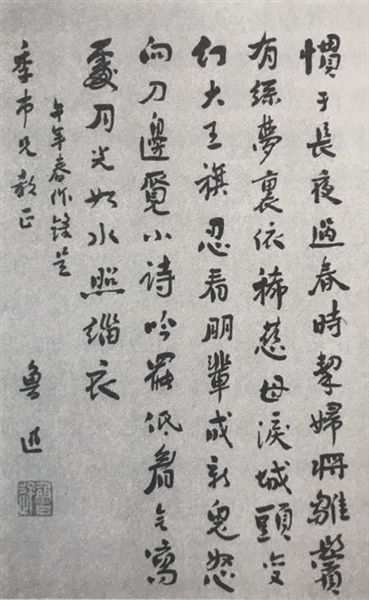 慣于長夜過春時挈婦將雛鬢
有絲夢裏依稀慈母淚城頭变
幻大王旗忍看朋輩成新鬼怒
向刀邊覓小詩吟罷低眉无寫
處月光如水照緇衣
午年春作錄呈
季市兄教正
魯迅